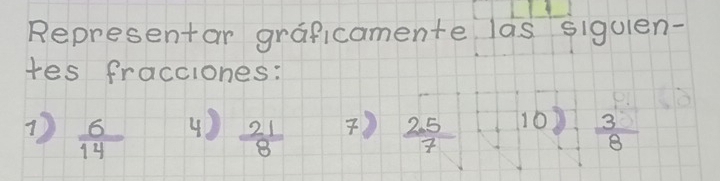 Representar gráficamente las siguien-
tes fracciones:
1) 6/14 4) 21/8 7) 25/7 10) 3/8